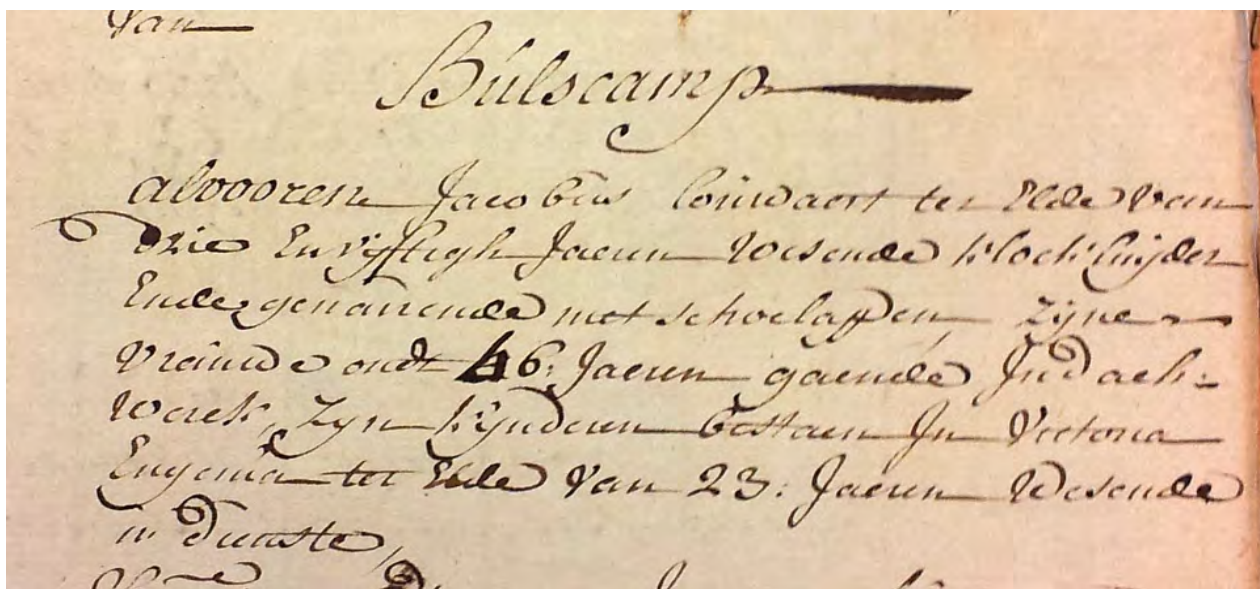 Van
Bulscamp
alvooren Jacobus Couwaert ter Elde van
drie En vijftigh Jaeren Wesende klockluijder
Ende generende met schoelappen, zijne
Vrauwe oudt 46: Jaeren gaende In dach-
werck, Zyn kijnderen bestaen In Victoria
Eugenia ter Elde Van 23: Jaeren Wesende
in dienste,